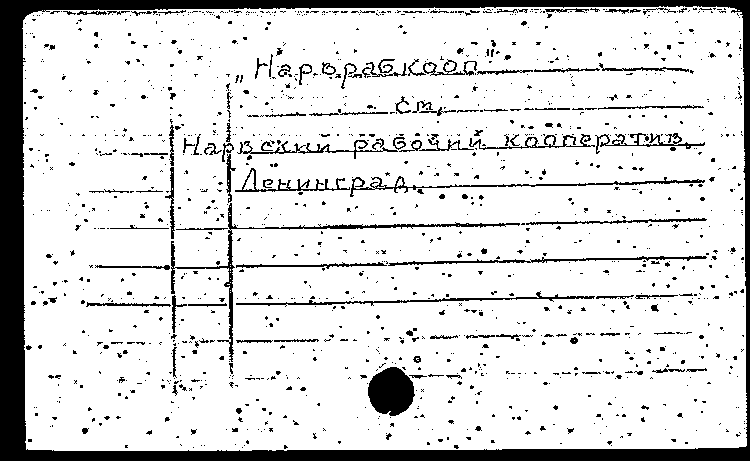 „Нарврабкооп"
см.
Нарвский рабочий кооператив.
Ленинград.